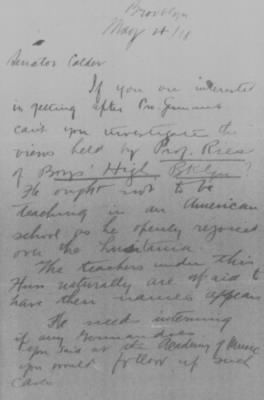 Brooklyn
May 4/18
Senator Calder.
If you are interested
in getting after Pro-Germans
can't you investigate the
views held by Prof. Ries
of Boys' High Bklyn?
He ought not to be
teaching in an American
school as he openly rejoiced
over the Lusitania.
The teachers under this
Hun naturally are afraid to
have their names appear
He needs interning
if any
You said at the Academy of Music
you would follow up such
cases